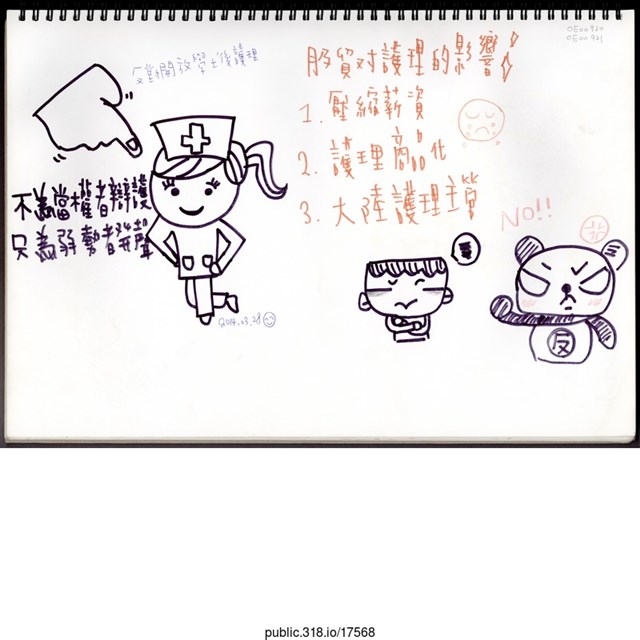 0E00920
0E00921
開放學士後護理
服貿对護理的影響!
1. 壓縮薪資
2. 護理商品化
3. 大陸護理主管
不為當權者辯護
只為弱勢者開聲
NO!!
反
2014.03.28
public.318.io/17568